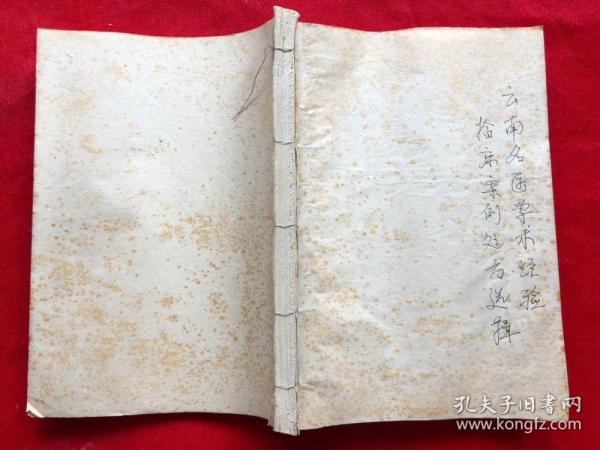 云南名医学术经验
临床案例处方选择
孔夫子旧书网
www.kongfz.com